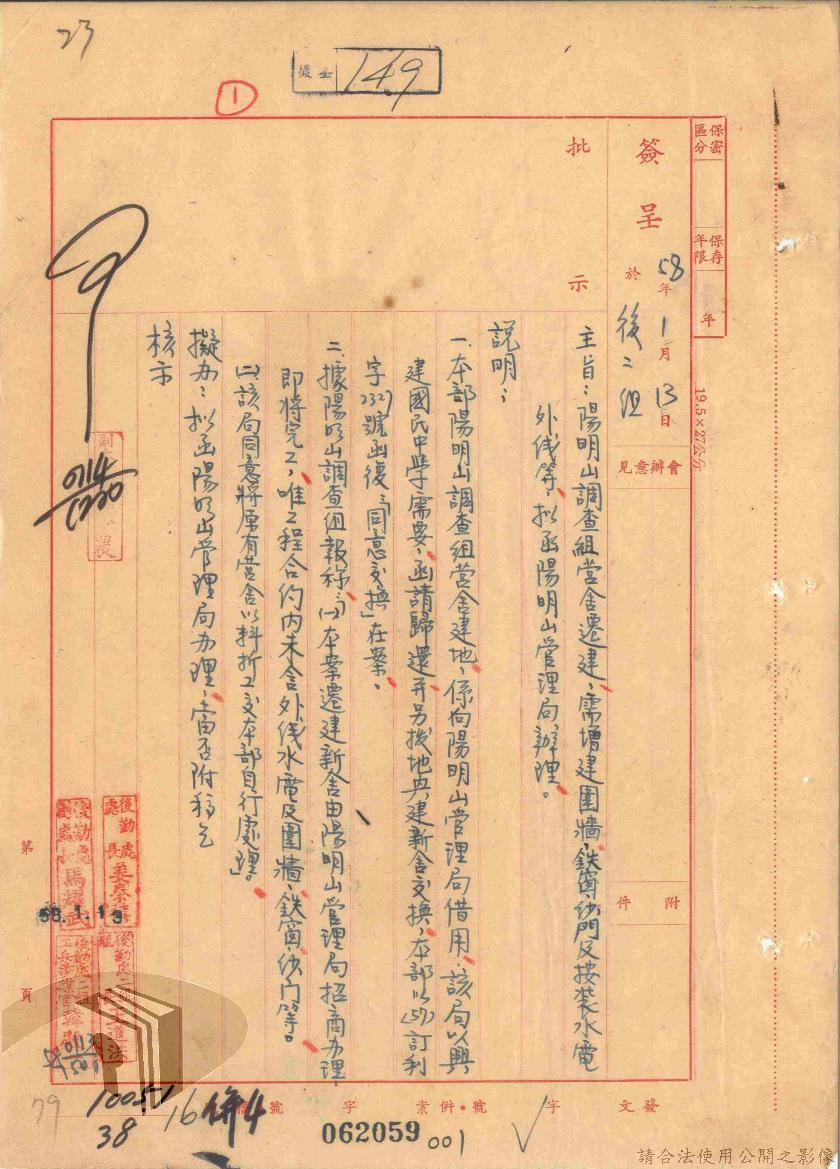 23
後呈
149
1
保密區分
保存年限
年
19.5×27公分
簽呈
58年1月13日
於後二組
會辦意見
附件
批示
主旨：陽明山調查組營舍遷建，需增建圍牆、鐵窗、紗門及按裝水電
外线等，拟函陽明山管理局辦理。
說明：
一、本部陽明山調查組營舍建地，係向陽明山管理局借用，該局以興
建國民中學需要，函請歸還并另撥地興建新舍交換，本部以(57)訂利
字2329號函復「同意交換」在案。
二、據陽明山調查組報称：(一)本案遷建新舍由陽明山管理局招商办理
即將完工，唯工程合約內未含外线水電及圍牆、鉄窗、纱门等。
(二)該局同意將原有營舍以料折工交本部自行處理」。
擬办：拟函陽明山管理局办理，當否附稿乞
核示
0114
1220
後勤處處長
後勤處副處長馬耀武
58.1.13
後勤處二組
王道法
0113
1501
第
頁
79
10051
38
16併4
發文
字
號·併案
字
號
062059
001
請合法使用公開之影像